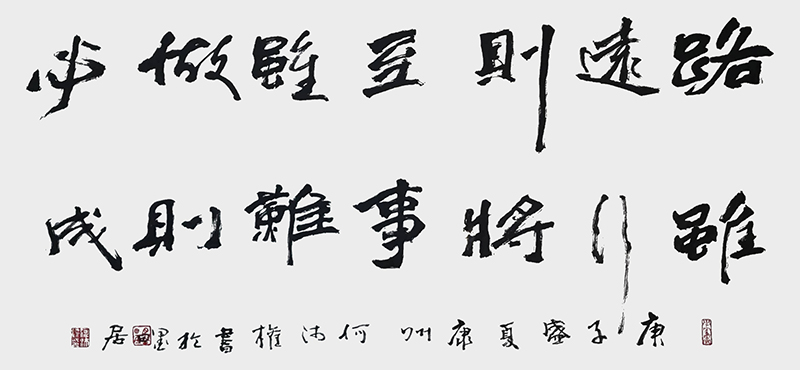 路雖
遠行
則將
至事
雖難
做則
必成
庚子盛夏康州何沛權書於墨居